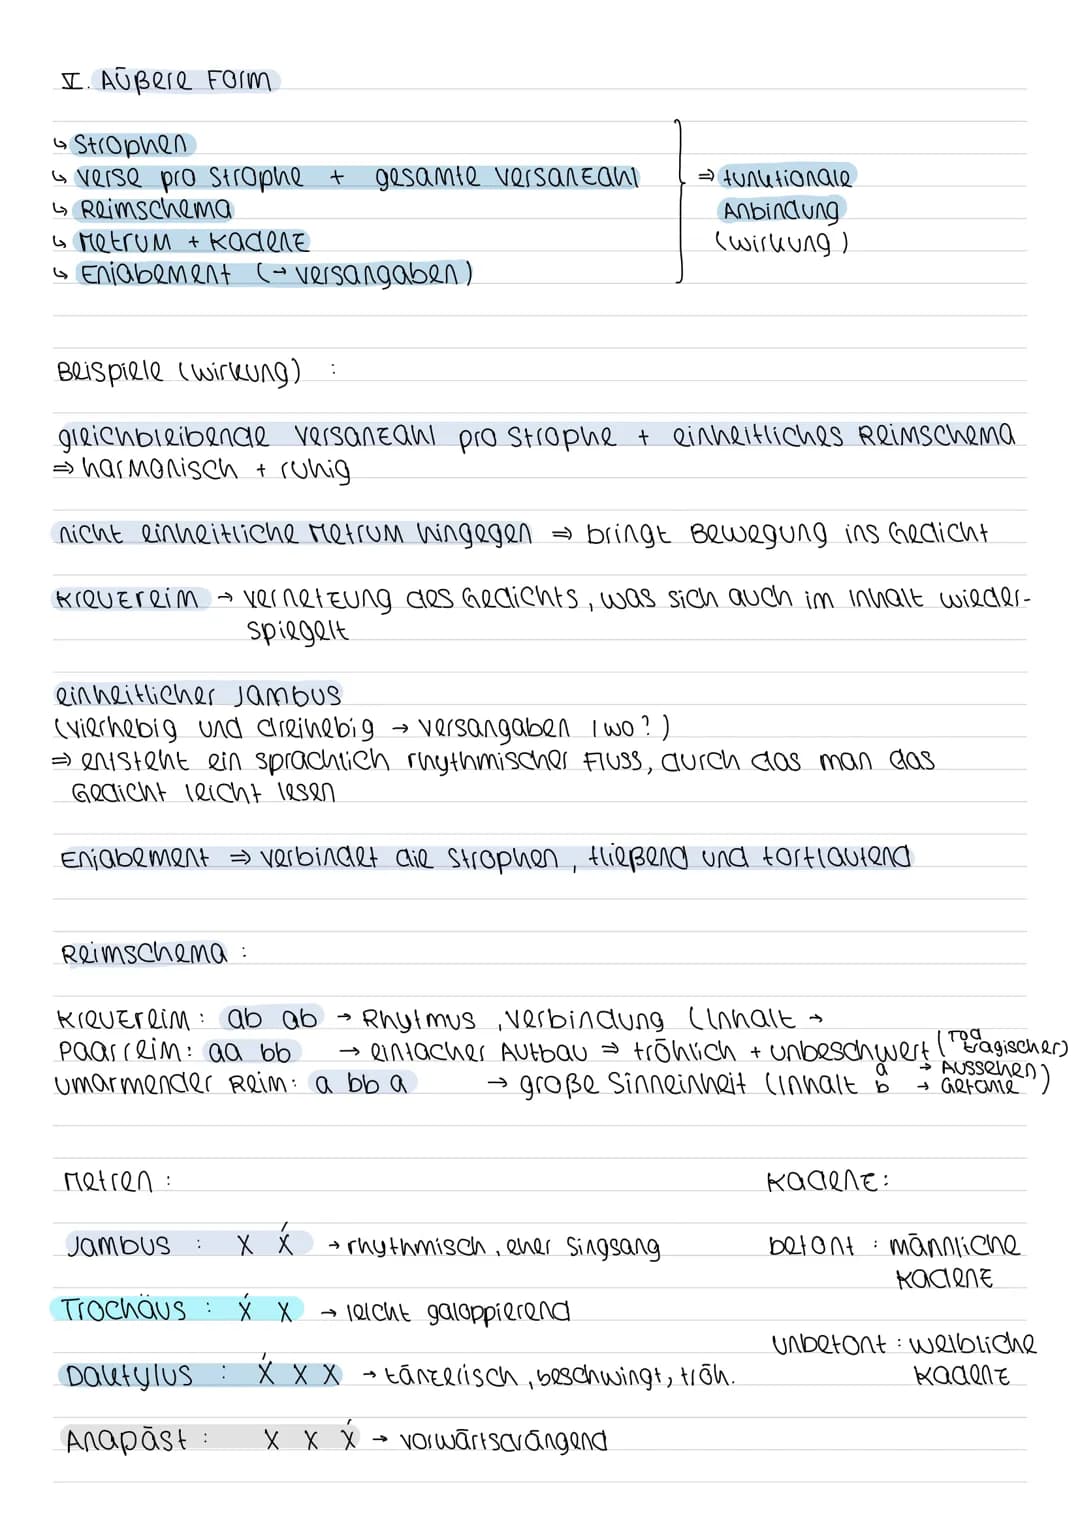 V. Äußere Form
↳ Strophen
↳ Verse pro Strophe + gesamte Versanzahl
↳ Reimschema
↳ Metrum + Kadenz
↳ Enjabement (→ Versangaben)
⇒ funktionale
Anbindung
(Wirkung)
Beispiele (Wirkung) :
gleichbleibende Versanzahl pro Strophe + einheitliches Reimschema
⇒ harmonisch + ruhig
nicht einheitliche Metrum hingegen ⇒ bringt Bewegung ins Gedicht
Kreuzreim → Vernetzung des Gedichts, was sich auch im Inhalt wieder-
spiegelt
einheitlicher Jambus
(vierhebig und dreihebig → Versangaben | wo?)
⇒ entsteht ein sprachlich rhythmischer Fluss, durch das man das
Gedicht leicht lesen
Enjabement ⇒ verbindet die Strophen, fließend und fortlaufend
Reimschema :
Kreuzreim : ab ab → Rhytmus, Verbindung (Inhalt →
Paarreim : aa bb → einfacher Aufbau ⇒ fröhlich + unbeschwert (Tod tragischer)
umarmender Reim : a bb a → große Sinneinheit (Inhalt a → Aussehen
b → Gefühle)
Metren :
Kadenz :
Jambus : x x́ → rhythmisch, eher Singsang
betont : männliche
Kadenz
Trochäus : x́ x → leicht galoppierend
unbetont : weibliche
Kadenz
Daktylus : x́ x x → tänzerisch, beschwingt, fröh.
Anapäst : x x x́ → vorwärtsdrängend